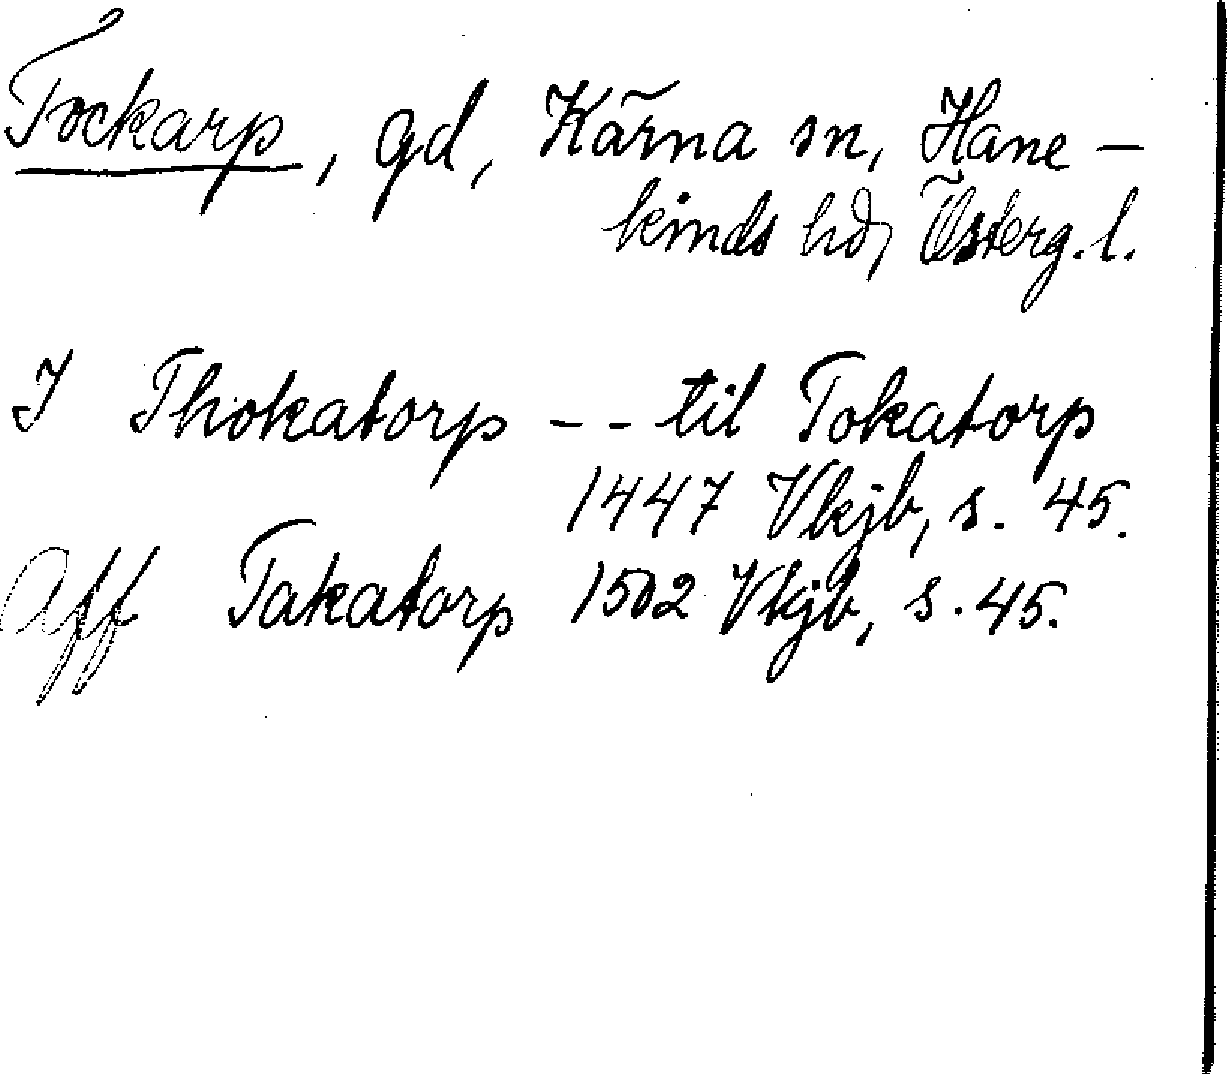 Tockarp, gd, Kärna sn, Hane-
kinds hd, Österg. l.
I Thokatorp -- til Tokatorp
1447 Vkjb, s. 45.
Aff Takatorp 1502 Vkjb, s. 45.